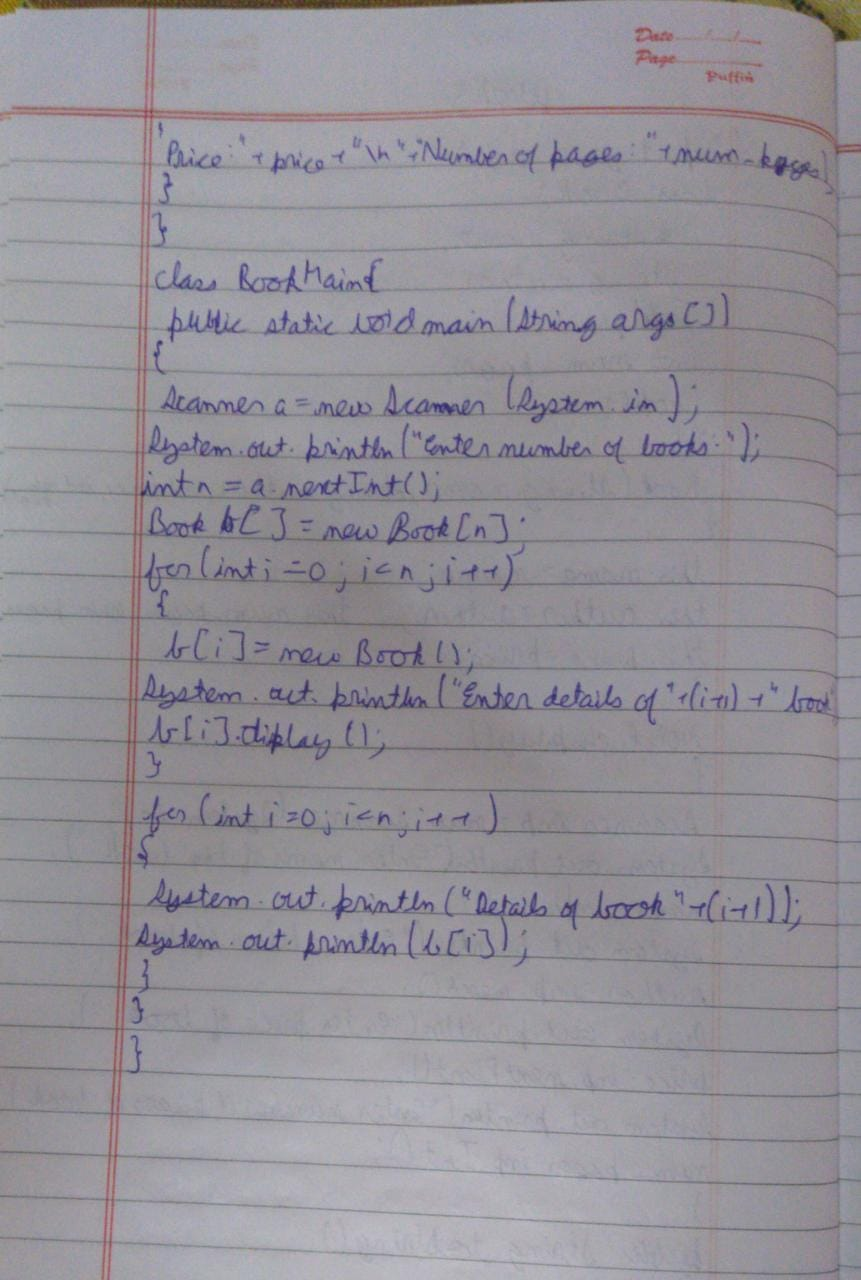 Date / /
Page
Puffin
"Price:"+price+"\n"+"Number of pages: "+num-pages)
}
}
class BookMain{
public static void main (String args [])
{
Scanner a = new Scanner (System.in);
System.out.println("Enter number of books:");
int n = a.nextInt();
Book b[] = new Book[n];
for(int i=0; i<n; i++)
{
b[i] = new Book();
System.out.println("Enter details of "+(i+1)+" book
b[i].display();
}
for(int i=0; i<n; i++)
{
System.out.println("Details of book"+(i+1));
System.out.println(b[i]);
}
}
}